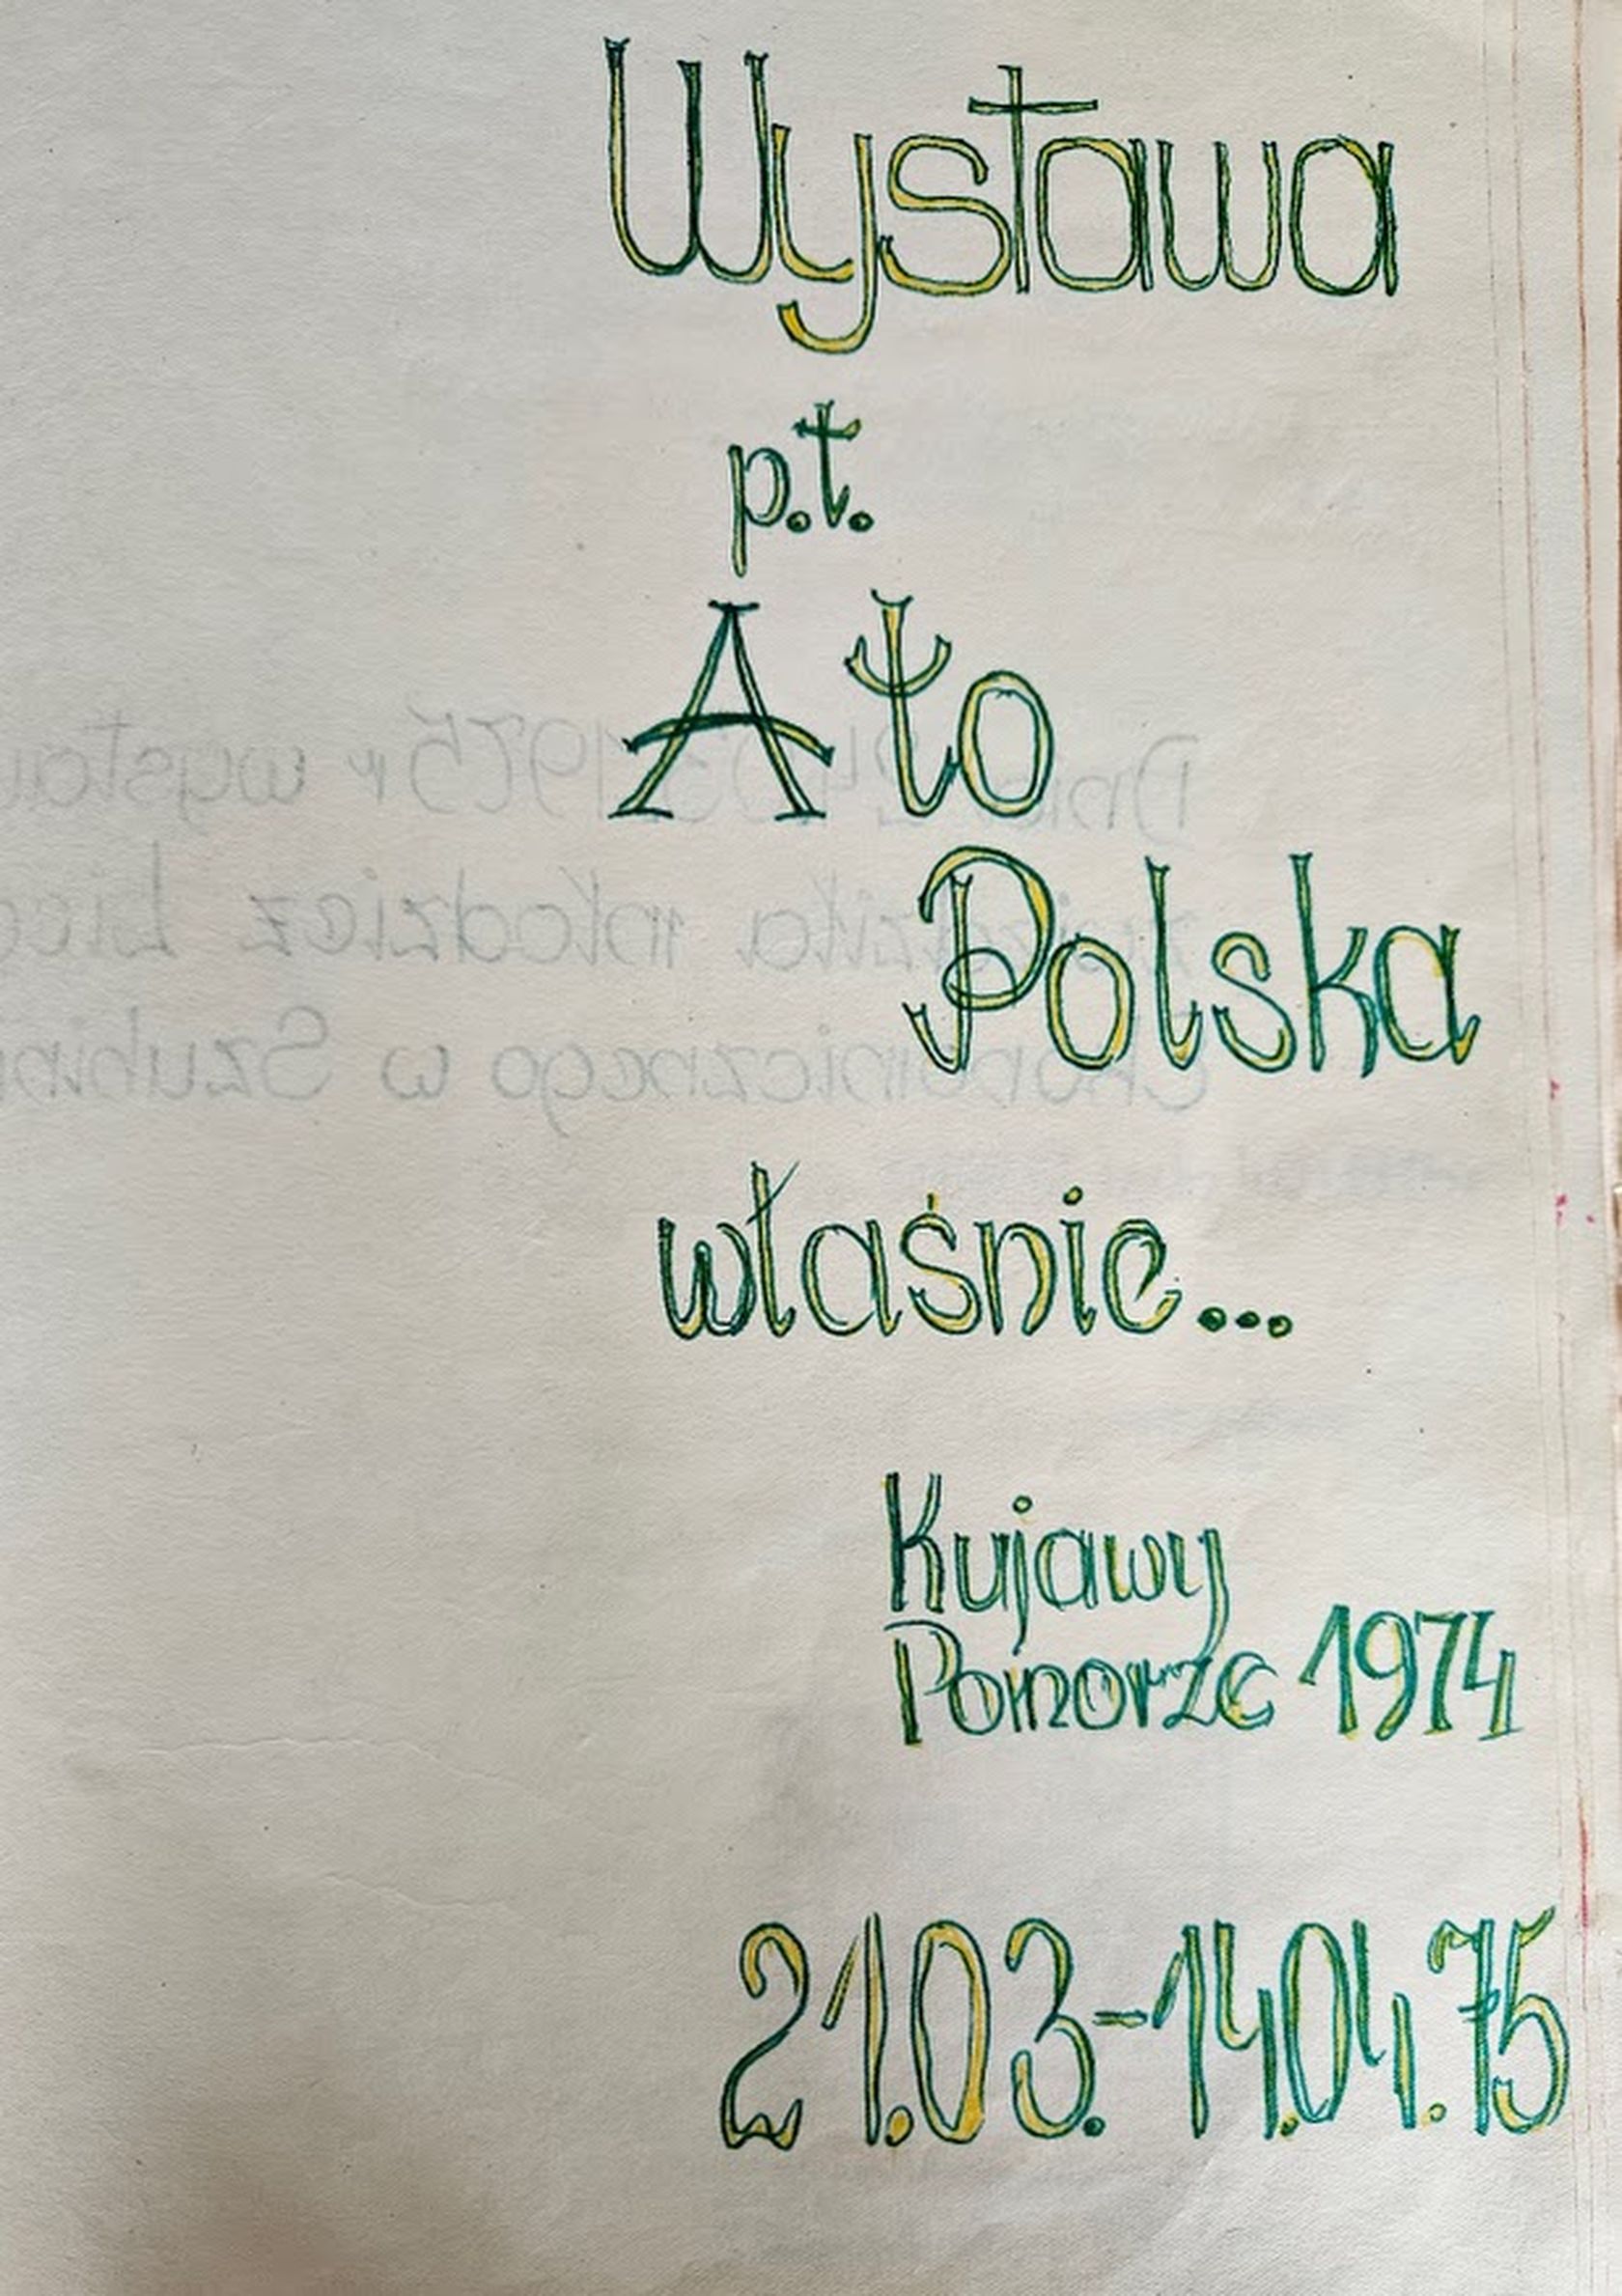 Wystawa
p.t.
A to
Polska
właśnie...
Kujawy
Pomorze 1974
21.03.-14.04.75